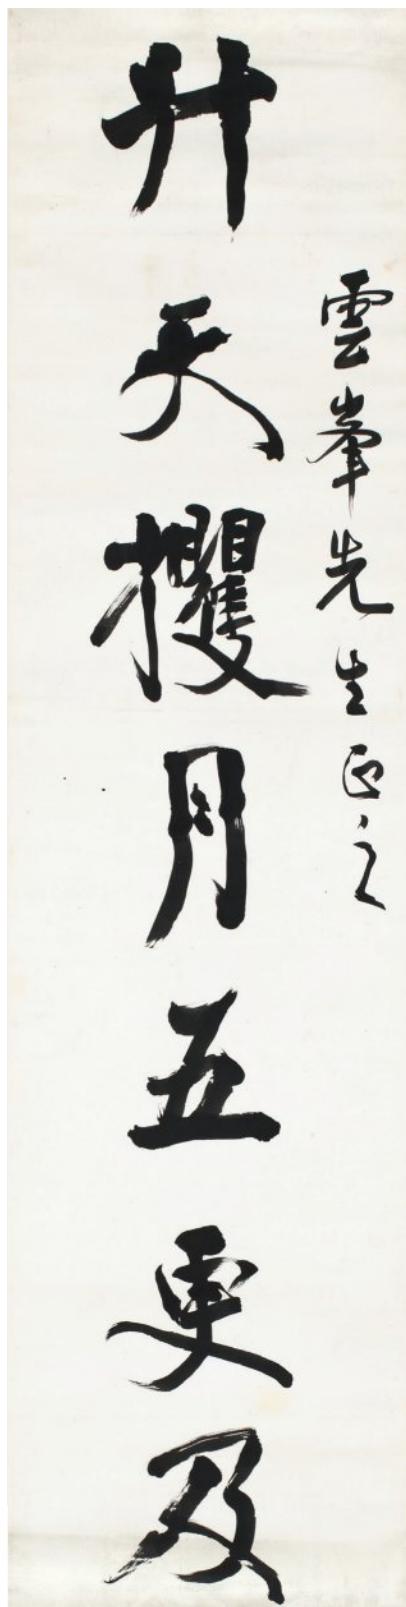 雲峯先生正之
升天攫月五更及